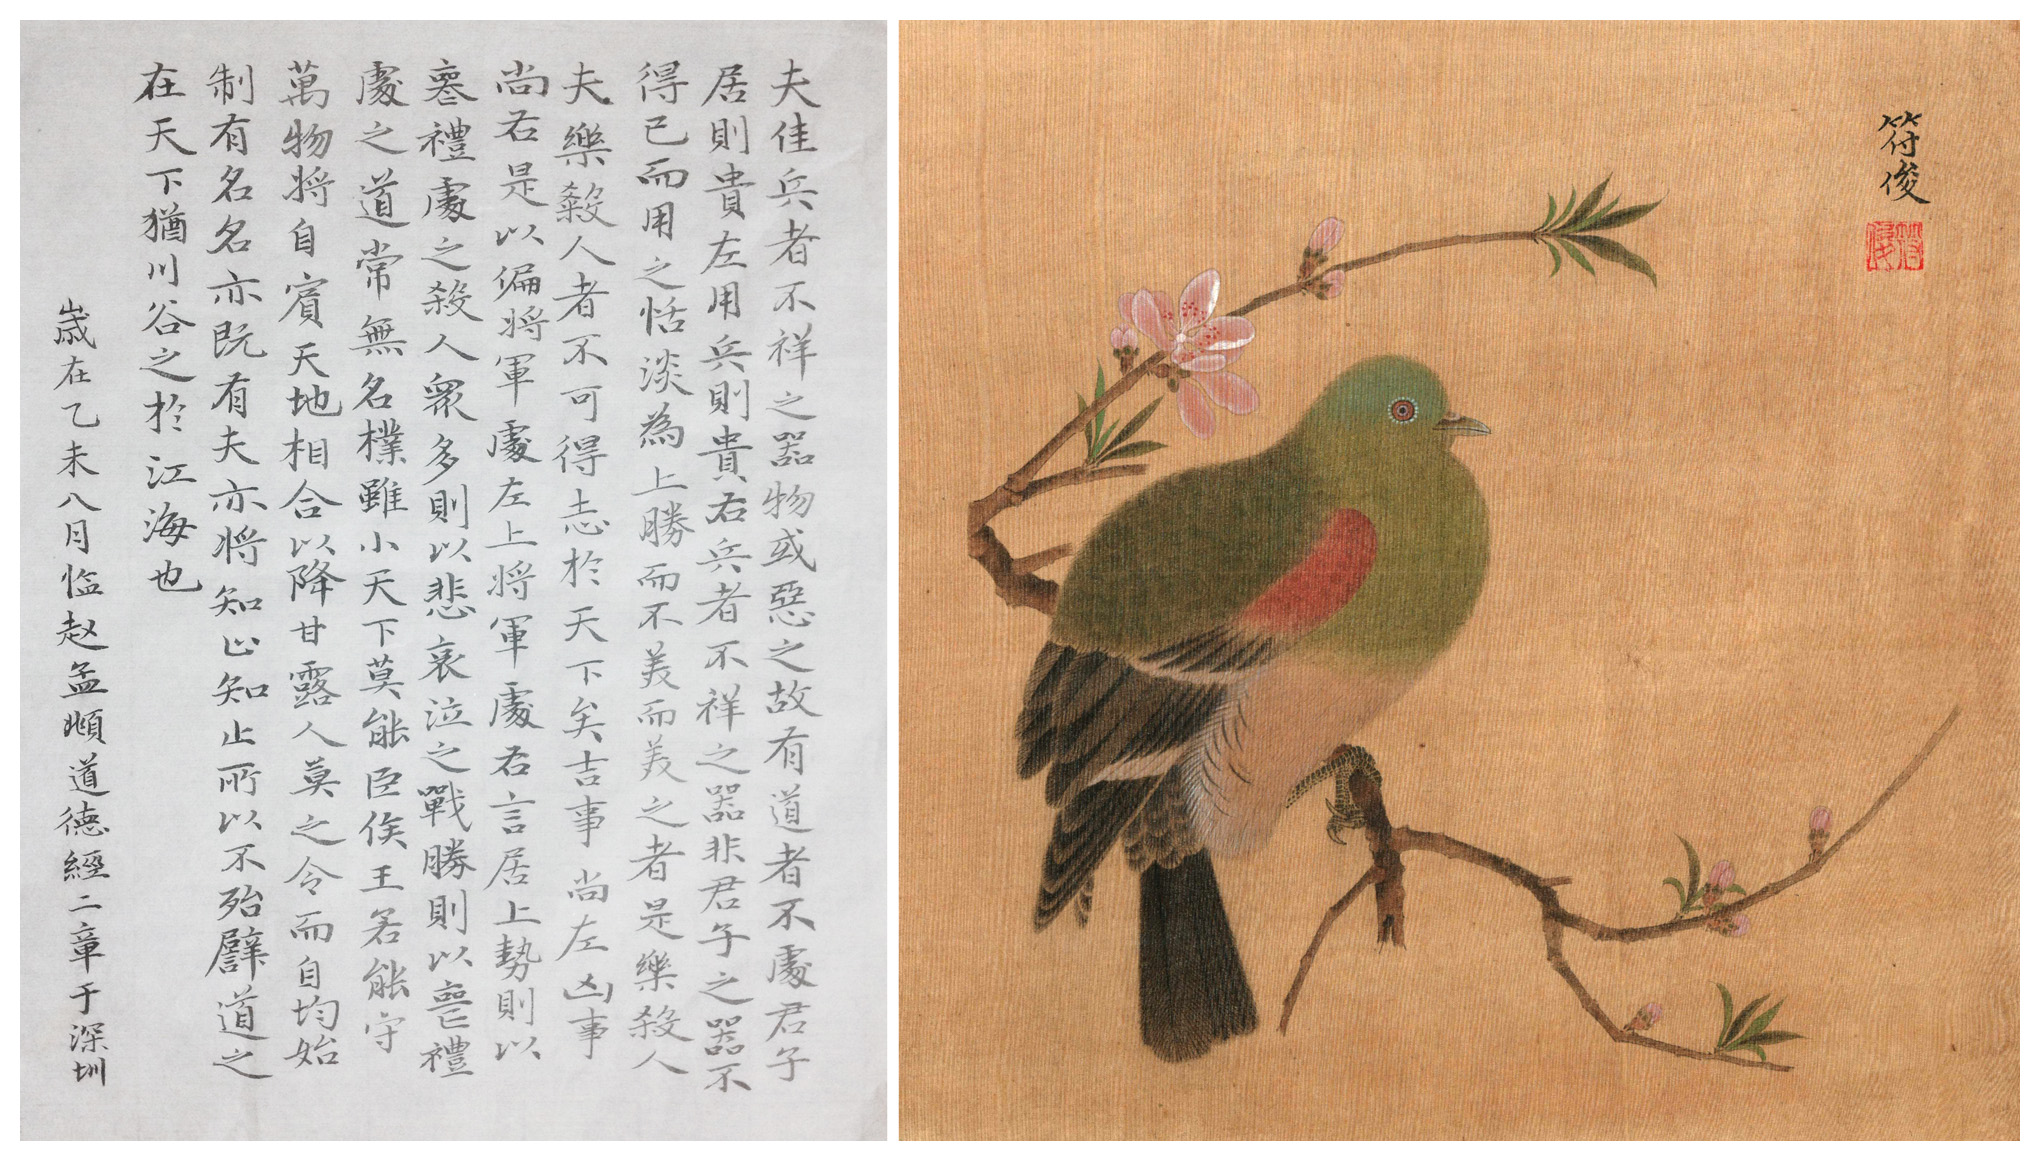 夫佳兵者不祥之器物或惡之故有道者不處君子
居則貴左用兵則貴右兵者不祥之器非君子之器不
得已而用之恬淡為上勝而不美而美之者是樂殺人
夫樂殺人者不可得志於天下矣吉事尚左凶事
尚右是以偏將軍處左上將軍處右言居上勢則以
喪禮處之殺人眾多則以悲哀泣之戰勝則以喪禮
處之道常無名樸雖小天下莫能臣侯王若能守
萬物將自賓天地相合以降甘露人莫之令而自均始
制有名名亦既有夫亦將知止知止所以不殆譬道之
在天下猶川谷之於江海也
歲在乙未八月临赵孟頫道德經二章于深圳
符俊